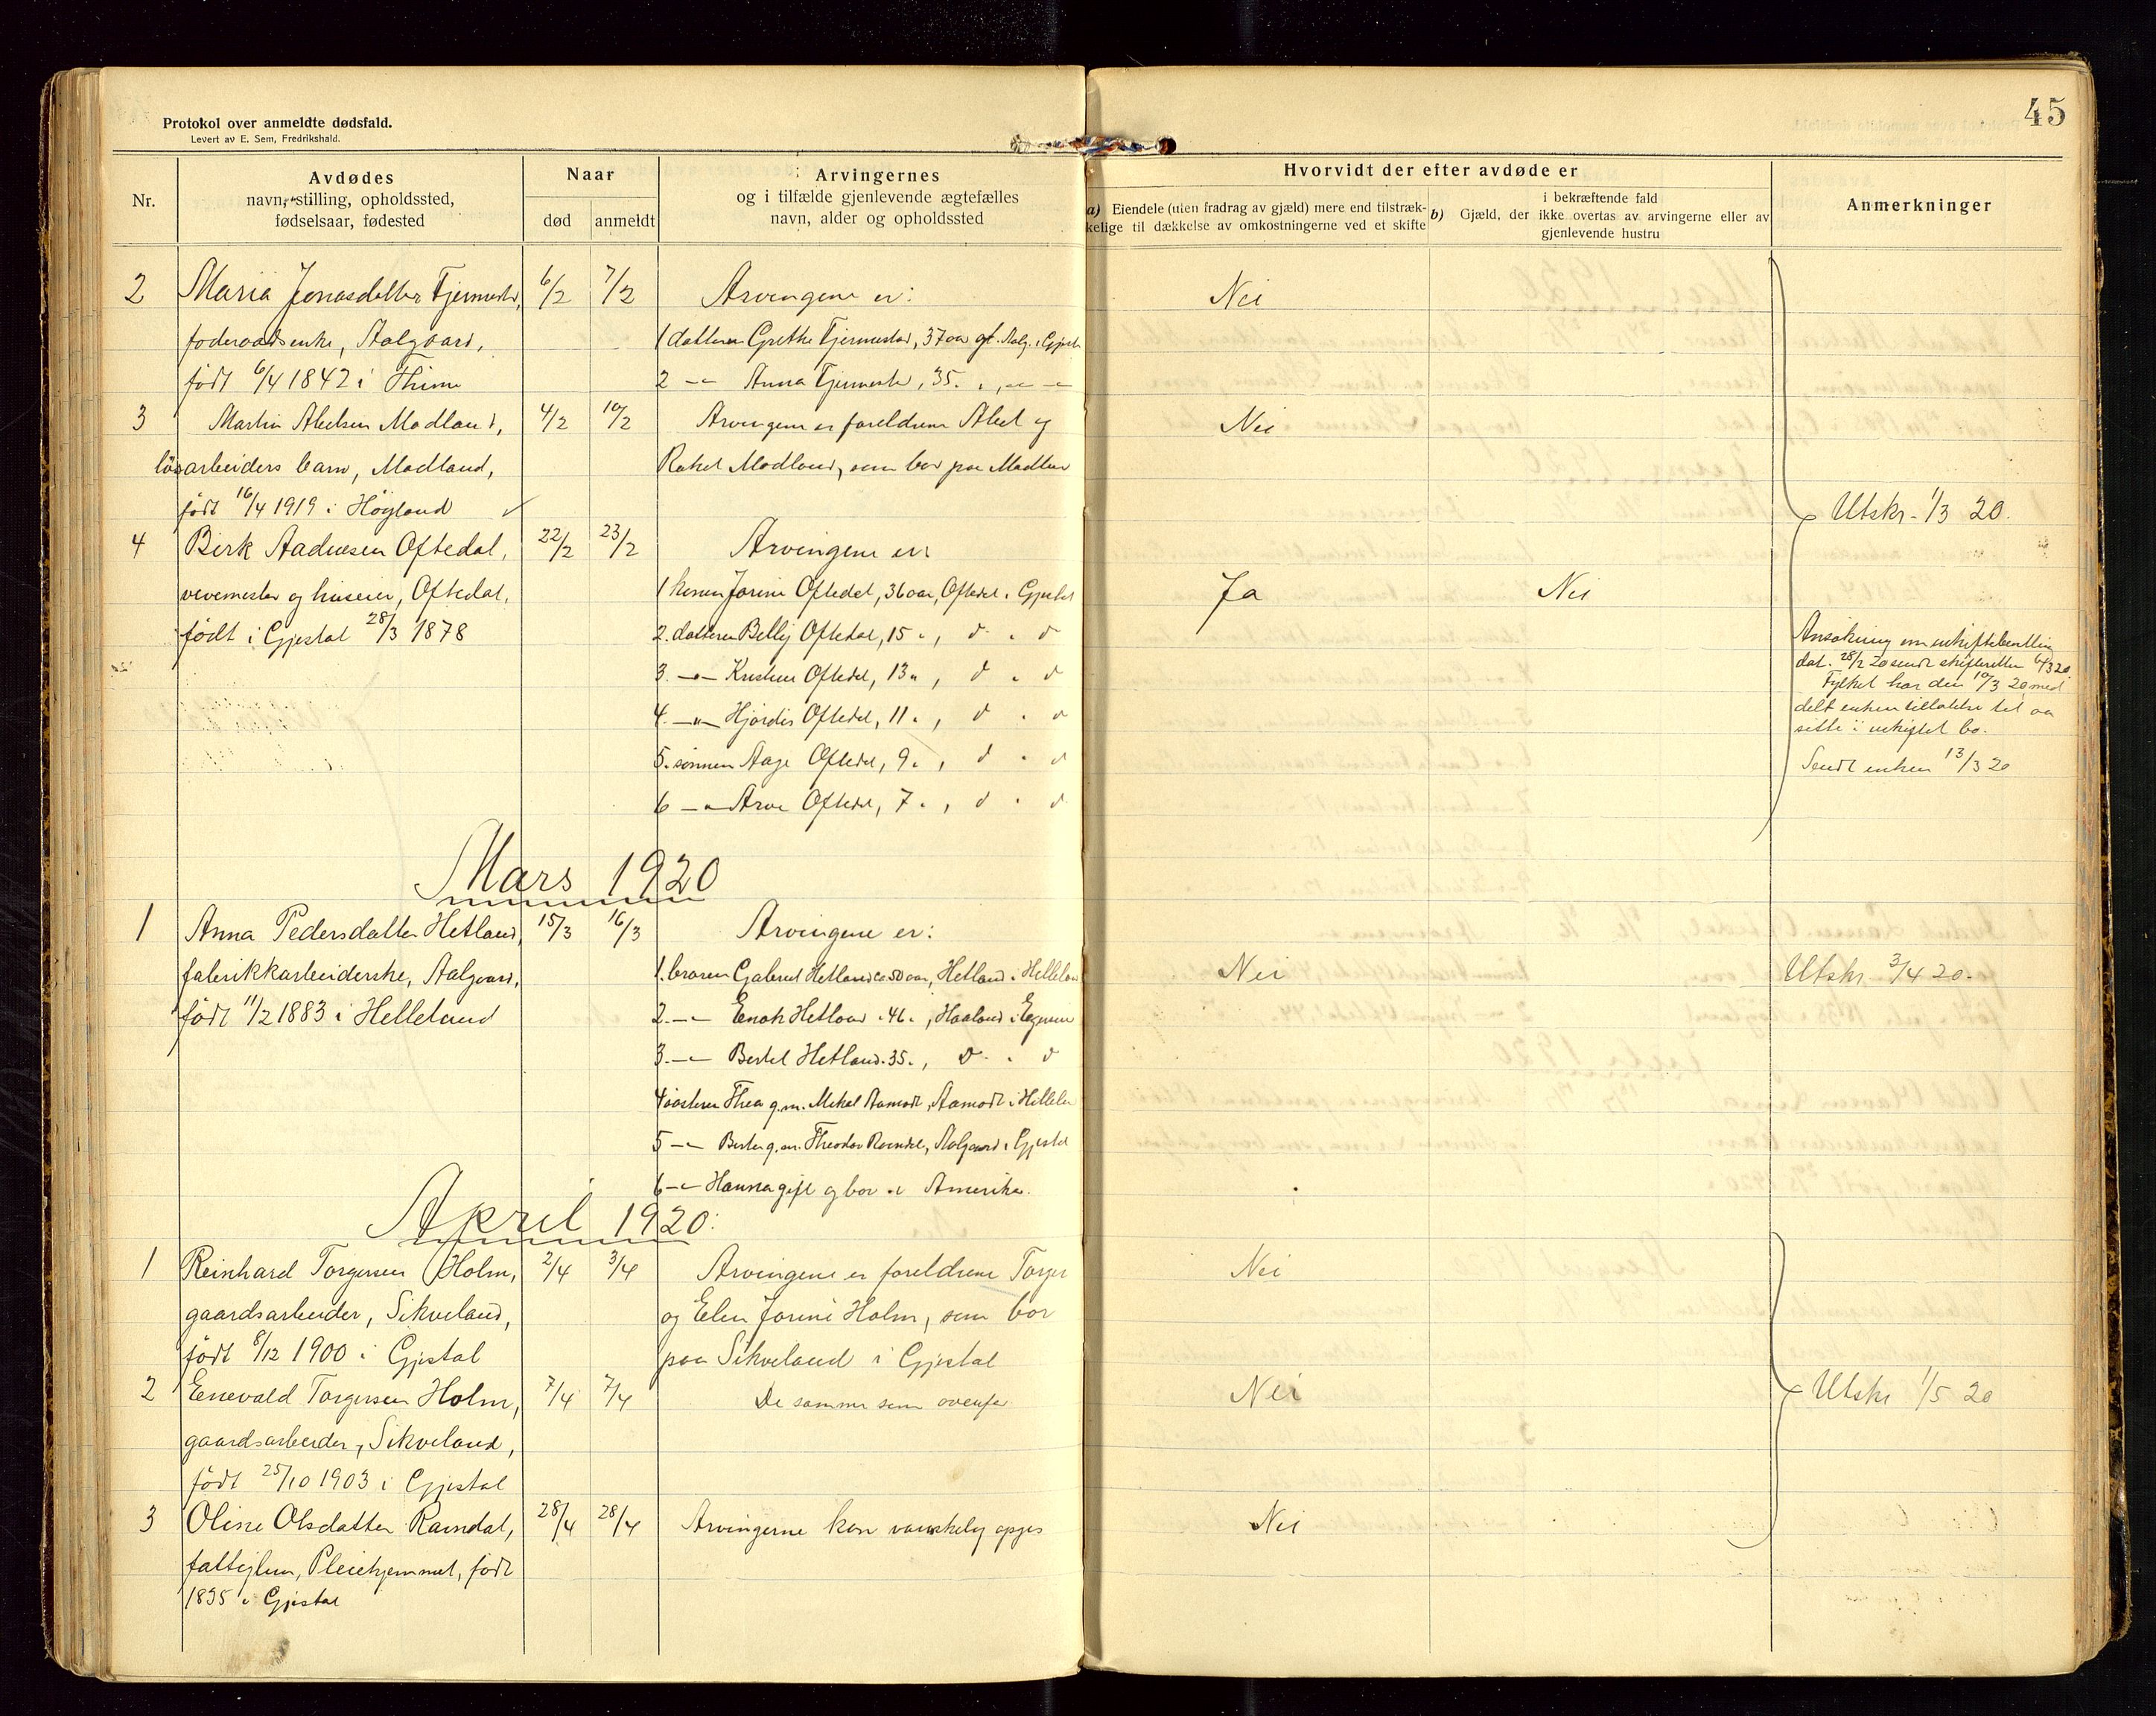 Protokol over anmeldte dødsfald.
Levert av E. Sem, Fredrikshald.
45
Nr.
Avdødes
navn, stilling, opholdssted,
fødselsaar, fødested
Naar
død
anmeldt
Arvingernes
og i tilfælde gjenlevende ægtefælles
navn, alder og opholdssted
Hvorvidt der efter avdøde er
a) Eiendele (uten fradrag av gjæld) mere end tilstræk-
kelige til dækkelse av omkostningerne ved et skifte
i bekræftende fald
b) Gjæld, der ikke overtas av arvingerne eller av
gjenlevende hustru
Anmerkninger
2 Maria Jonasdatter Fjermestad, 6/2 7/2 Arvingene er: Nei
foderaadsenke, Aalgaard, 1 datteren Grethe Fjermestad, 37 aar gl. Aalg. i Gjestal
født 6/4 1842 i Thime 2 -"- Anna Fjermestad, 35. " , -"-
3 Martin Abelsen Madland, 4/2 10/2 Arvingene er foreldrene Abel og Nei
løsarbeiders barn, Madland, Rakel Madland, som bor paa Madland
født 16/4 1919 i Höyland Utskr. 1/3 20.
4 Birk Aadnesen Oftedal, 22/2 23/2 Arvingene er:
vevemester og huseier, Oftedal, 1 konen Jorine Oftedal, 36 aar, Oftedal i Gjestal Ja Nei
født i Gjestal 28/3 1878 2. datteren Belly Oftedal, 15 ", d " d
3. -"- Kristine Oftedal, 13 ", d " d
4. -"- Hjørdis Oftedal, 11 ", d " d
5. sønnen Aage Oftedal, 9 ", d " d
6 -"- Arve Oftedal, 7 ", d " d
Ansökning om uskiftebevilling
dat. 28/2 20 sendt skifteretten 6/3 20.
Fylket har den 10/3 20 med
delt enken tillatelse til aa
sitte i uskiftet bo.
Sendt enken 13/3 20
Mars 1920
1 Anna Pedersdatter Hetland, 15/3 16/3 Arvingene er:
fabrikkarbeiderske, Aalgaard, 1. broren Gabriel Hetland ca 50 aar, Hetland i Helleland Nei Utskr. 3/4 20.
født 11/2 1883 i Helleland 2. -"- Enok Hetland " 46 ", Haaland i Egersund
3. -"- Bertel Hetland. 35 ", d " d
4 søsteren Thea g.m. Mikal Aamodt, Aamodt i Helleland
5 -"- Berte g.m. Theodor Ravndal, Aalgaard i Gjestal
6 -"- Hanna gift og bor i Amerika.
April 1920:
1 Reinhard Torgersen Holm, 2/4 3/4 Arvingene er foreldrene Torger Nei
gaardsarbeider, Sikveland, og Elen Jorine Holm, som bor
født 8/12 1900 i Gjestal paa Sikveland i Gjestal
2 Enevald Torgersen Holm, 7/4 7/4 De samme som ovenfor Nei Utskr 1/5 20
gaardsarbeider, Sikveland,
født 25/10 1903 i Gjestal
3 Oline Olsdatter Ravndal, 28/4 28/4 Arvingerne kan vanskelig opgis Nei
fattiglem, Pleiehjemmet, født
1835 i Gjestal